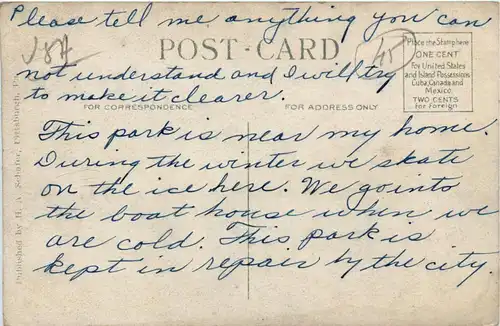 Please tell me anything you can
POST-CARD
not understand and I will try
to make it clearer.
Place the Stamp here
ONE CENT
For United States
and Island Possessions
Cuba, Canada and
Mexico
TWO CENTS
for Foreign
FOR CORRESPONDENCE
FOR ADDRESS ONLY
This park is near my home.
During the winter we skate
on the ice here. We go into
the boat house when we
are cold. This park is
kept in repair by the city
Published by H. A. Schafer, Pittsburgh,